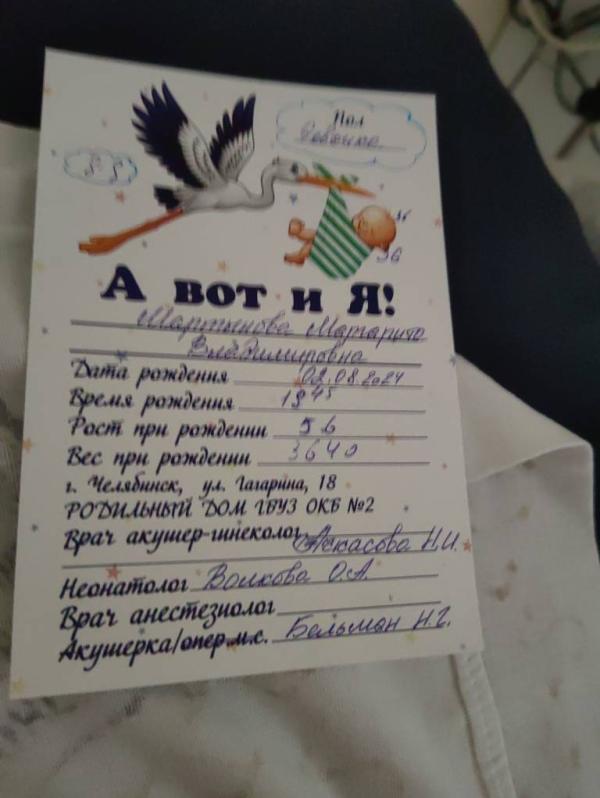 Пол
Девочка
А вот и Я!
Мартынова Маргарита
Владимировна
Дата рождения 02.08.2024
Время рождения 13 45
Рост при рождении 56
Вес при рождении 3640
г. Челябинск, ул. Гагарина, 18
РОДИЛЬНЫЙ ДОМ ГБУЗ ОКБ №2
Врач акушер-гинеколог Н.И.
Неонатолог Волкова О.А.
Врач анестезиолог
Акушерка/опер.м.с. Бельман Н.Г.